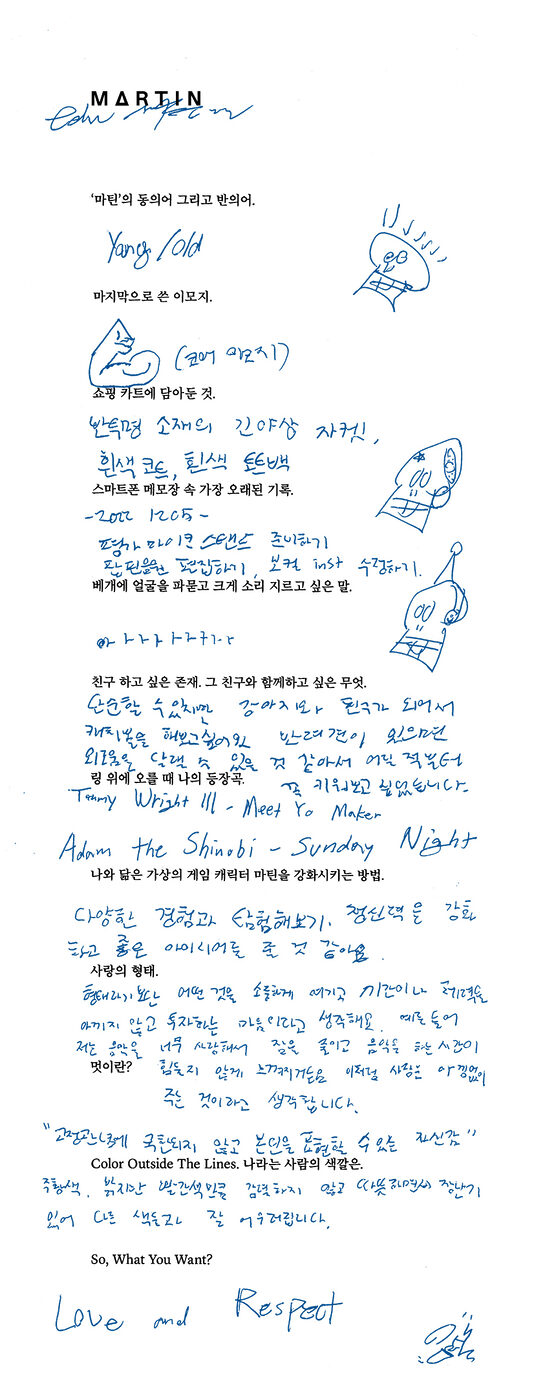 MARTIN
'마틴'의 동의어 그리고 반의어.
Yang / Old
마지막으로 쓴 이모지.
(코어 이모지)
쇼핑 카트에 담아둔 것.
반투명 소재의 긴 야상 자켓,
흰색 코트, 흰색 토트백
스마트폰 메모장 속 가장 오래된 기록.
-2022 1205-
평가 마이크 스탠드 준비하기
편집하기, 보컬 inst 수정하기.
베개에 얼굴을 파묻고 크게 소리 지르고 싶은 말.
친구 하고 싶은 존재. 그 친구와 함께하고 싶은 무엇.
단순할 수 있지만 강아지와 친구가 되어서
캐치볼을 해보고싶어요 반려견이 있으면
외로움을 달랠 수 있을 것 같아서 어릴 적부터
꼭 키워보고 싶었습니다.
링 위에 오를 때 나의 등장곡.
Tommy Wright III - Meet Yo Maker
Adam the Shinobi - Sunday Night
나와 닮은 가상의 게임 캐릭터 마틴을 강화시키는 방법.
다양한 경험과 탐험해보기. 정신력을 강화
하고 좋은 아이디어를 줄 것 같아요.
사랑의 형태.
형태라기보단 어떤 것을 소중하게 여기고 시간이나 체력을
아끼지 않고 투자하는 마음이라고 생각해요. 예를 들어
저는 음악을 너무 사랑해서 잠을 줄이고 음악을 하는 시간이
힘들지 않게 느껴지거든요 이처럼 사랑은 아낌없이
주는 것이라고 생각합니다.
멋이란?
"고정관념에 국한되지 않고 본인을 표현할 수 있는 자신감"
Color Outside The Lines. 나라는 사람의 색깔은.
주황색. 밝지만 빨간색만큼 강렬하지 않고 따뜻하면서 장난기
있어 다른 색들과 잘 어우러집니다.
So, What You Want?
Love and Respect